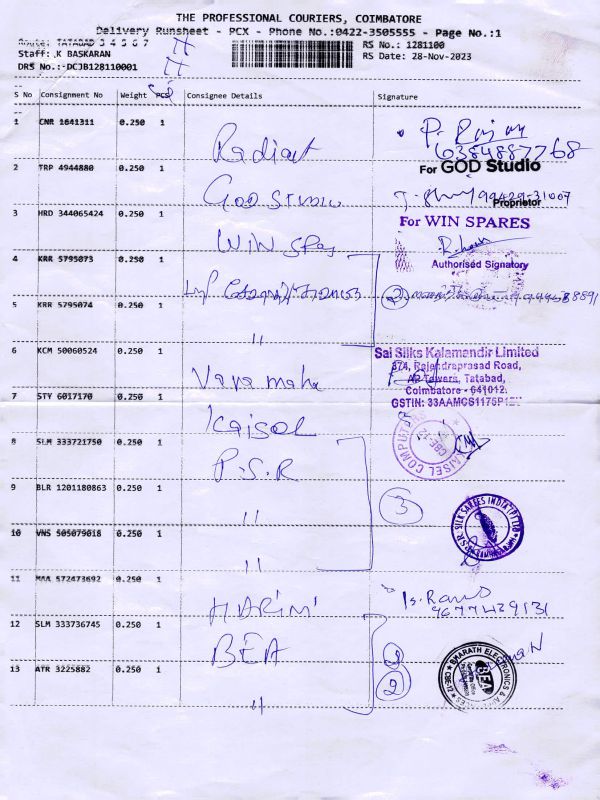 THE PROFESSIONAL COURIERS, COIMBATORE
Delivery Runsheet - PCX - Phone No.:0422-3505555 - Page No.:1
Route: TATABAD 3 4 5 6 7
Staff: K BASKARAN
DRS No.:-DCJB128110001
RS No.: 1281100
RS Date: 28-Nov-2023
S No Consignment No Weight PCS Consignee Details Signature
1 CNR 1641311 0.250 1 Radiant P. Rajan
6384887768
2 TRP 4944880 0.250 1 GOD STUDIO For GOD Studio
99429-31007
Proprietor
3 HRD 344065424 0.250 1 WIN Spas For WIN SPARES
Authorised Signatory
4 KRR 5795073 0.250 1
5 KRR 5795074 0.250 1 " 2
6 KCM 50060524 0.250 1 Vara maha Sai Silks Kalamandir Limited
374, Rajendraprasad Road,
AR Towers, Tatabad,
Coimbatore - 641012.
7 STY 6017170 0.250 1 Kaisal
8 SLM 333721750 0.250 1 P.S.R
9 BLR 1201180863 0.250 1 " 3
10 VNS 505079018 0.250 1 "
11 MAA 572473692 0.250 1 HARINI
9677429131
12 SLM 333736745 0.250 1 BEA
13 ATR 3225882 0.250 1 " 2
BHARATH ELECTRONICS &
BEA